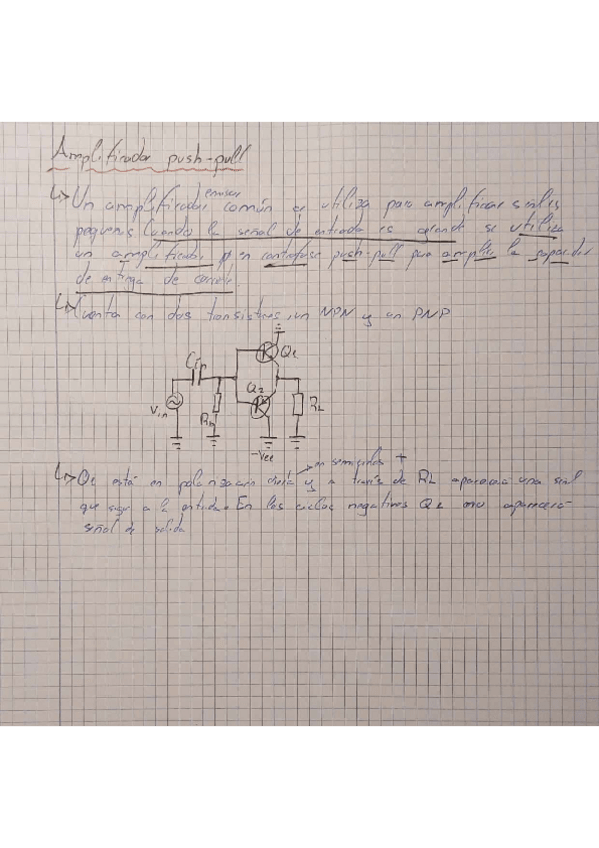 Amplificador push-pull
↳ Un amplificador emisor común se utiliza para amplificar señales
pequeñas Cuando la señal de entrada es grande se utiliza
un amplificador en contrafase push-pull para ampliar la capacidad
de entrega de corriente.
↳ Cuenta con dos transistores, un NPN y un PNP
Q1
Cin
Q2
Vin
Rin
RL
-Vcc
en semiciclos +
↳ Q1 está en polarización directa y a través de RL aparecerá una señal
que sigue a la entrada. En los ciclos negativos Q2 aparecerá
señal de salida